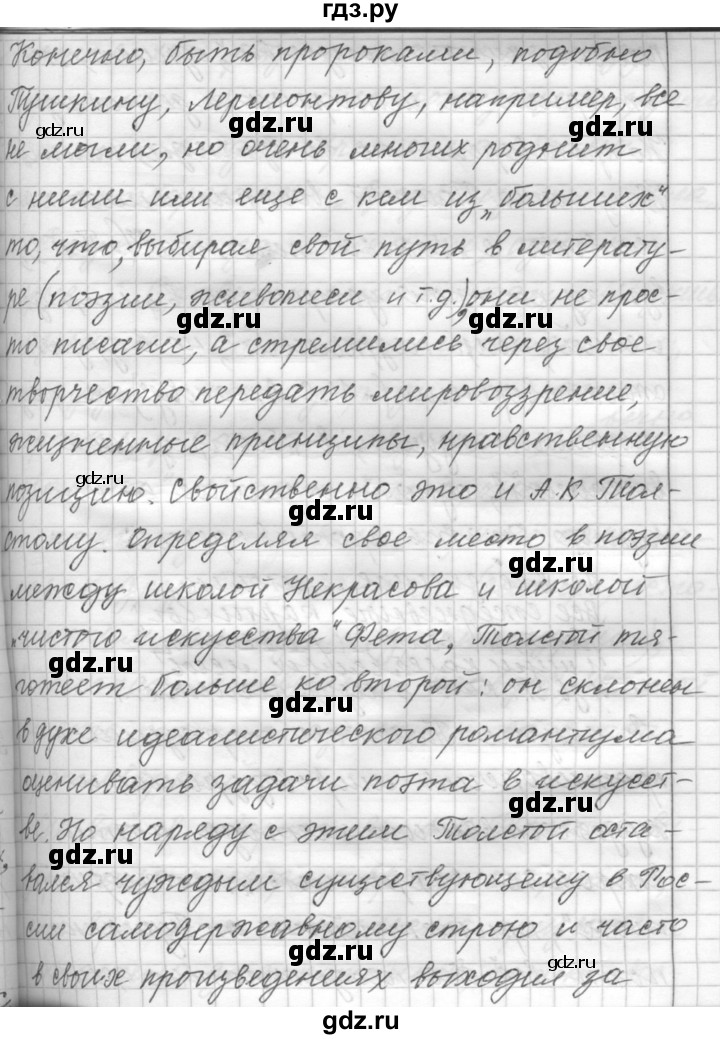 гдз.ру
Конечно, быть пророками, подобно
Пушкину, Лермонтову, например, все
не могли, но очень многих роднит
с ними или еще с кем из „больших“
то, что, выбирая свой путь в литерату-
ре (поэзии, живописи и т.д.), они не прос-
то писали, а стремились через свое
творчество передать мировоззрение,
жизненные принципы, нравственную
позицию. Свойственно это и А.К Тол-
стому. Определяя свое место в поэзии
между школой Некрасова и школой
„чистого искусства“ Фета, Толстой тя-
готеет больше ко второй: он склонен
в духе идеалистического романтизма
оценивать задачи поэта в искусст-
ве. Но наряду с этим Толстой оста-
вался чуждым существующему в Рос-
сии самодержавному строю и часто
в своих произведениях выходил за
gdz.ru